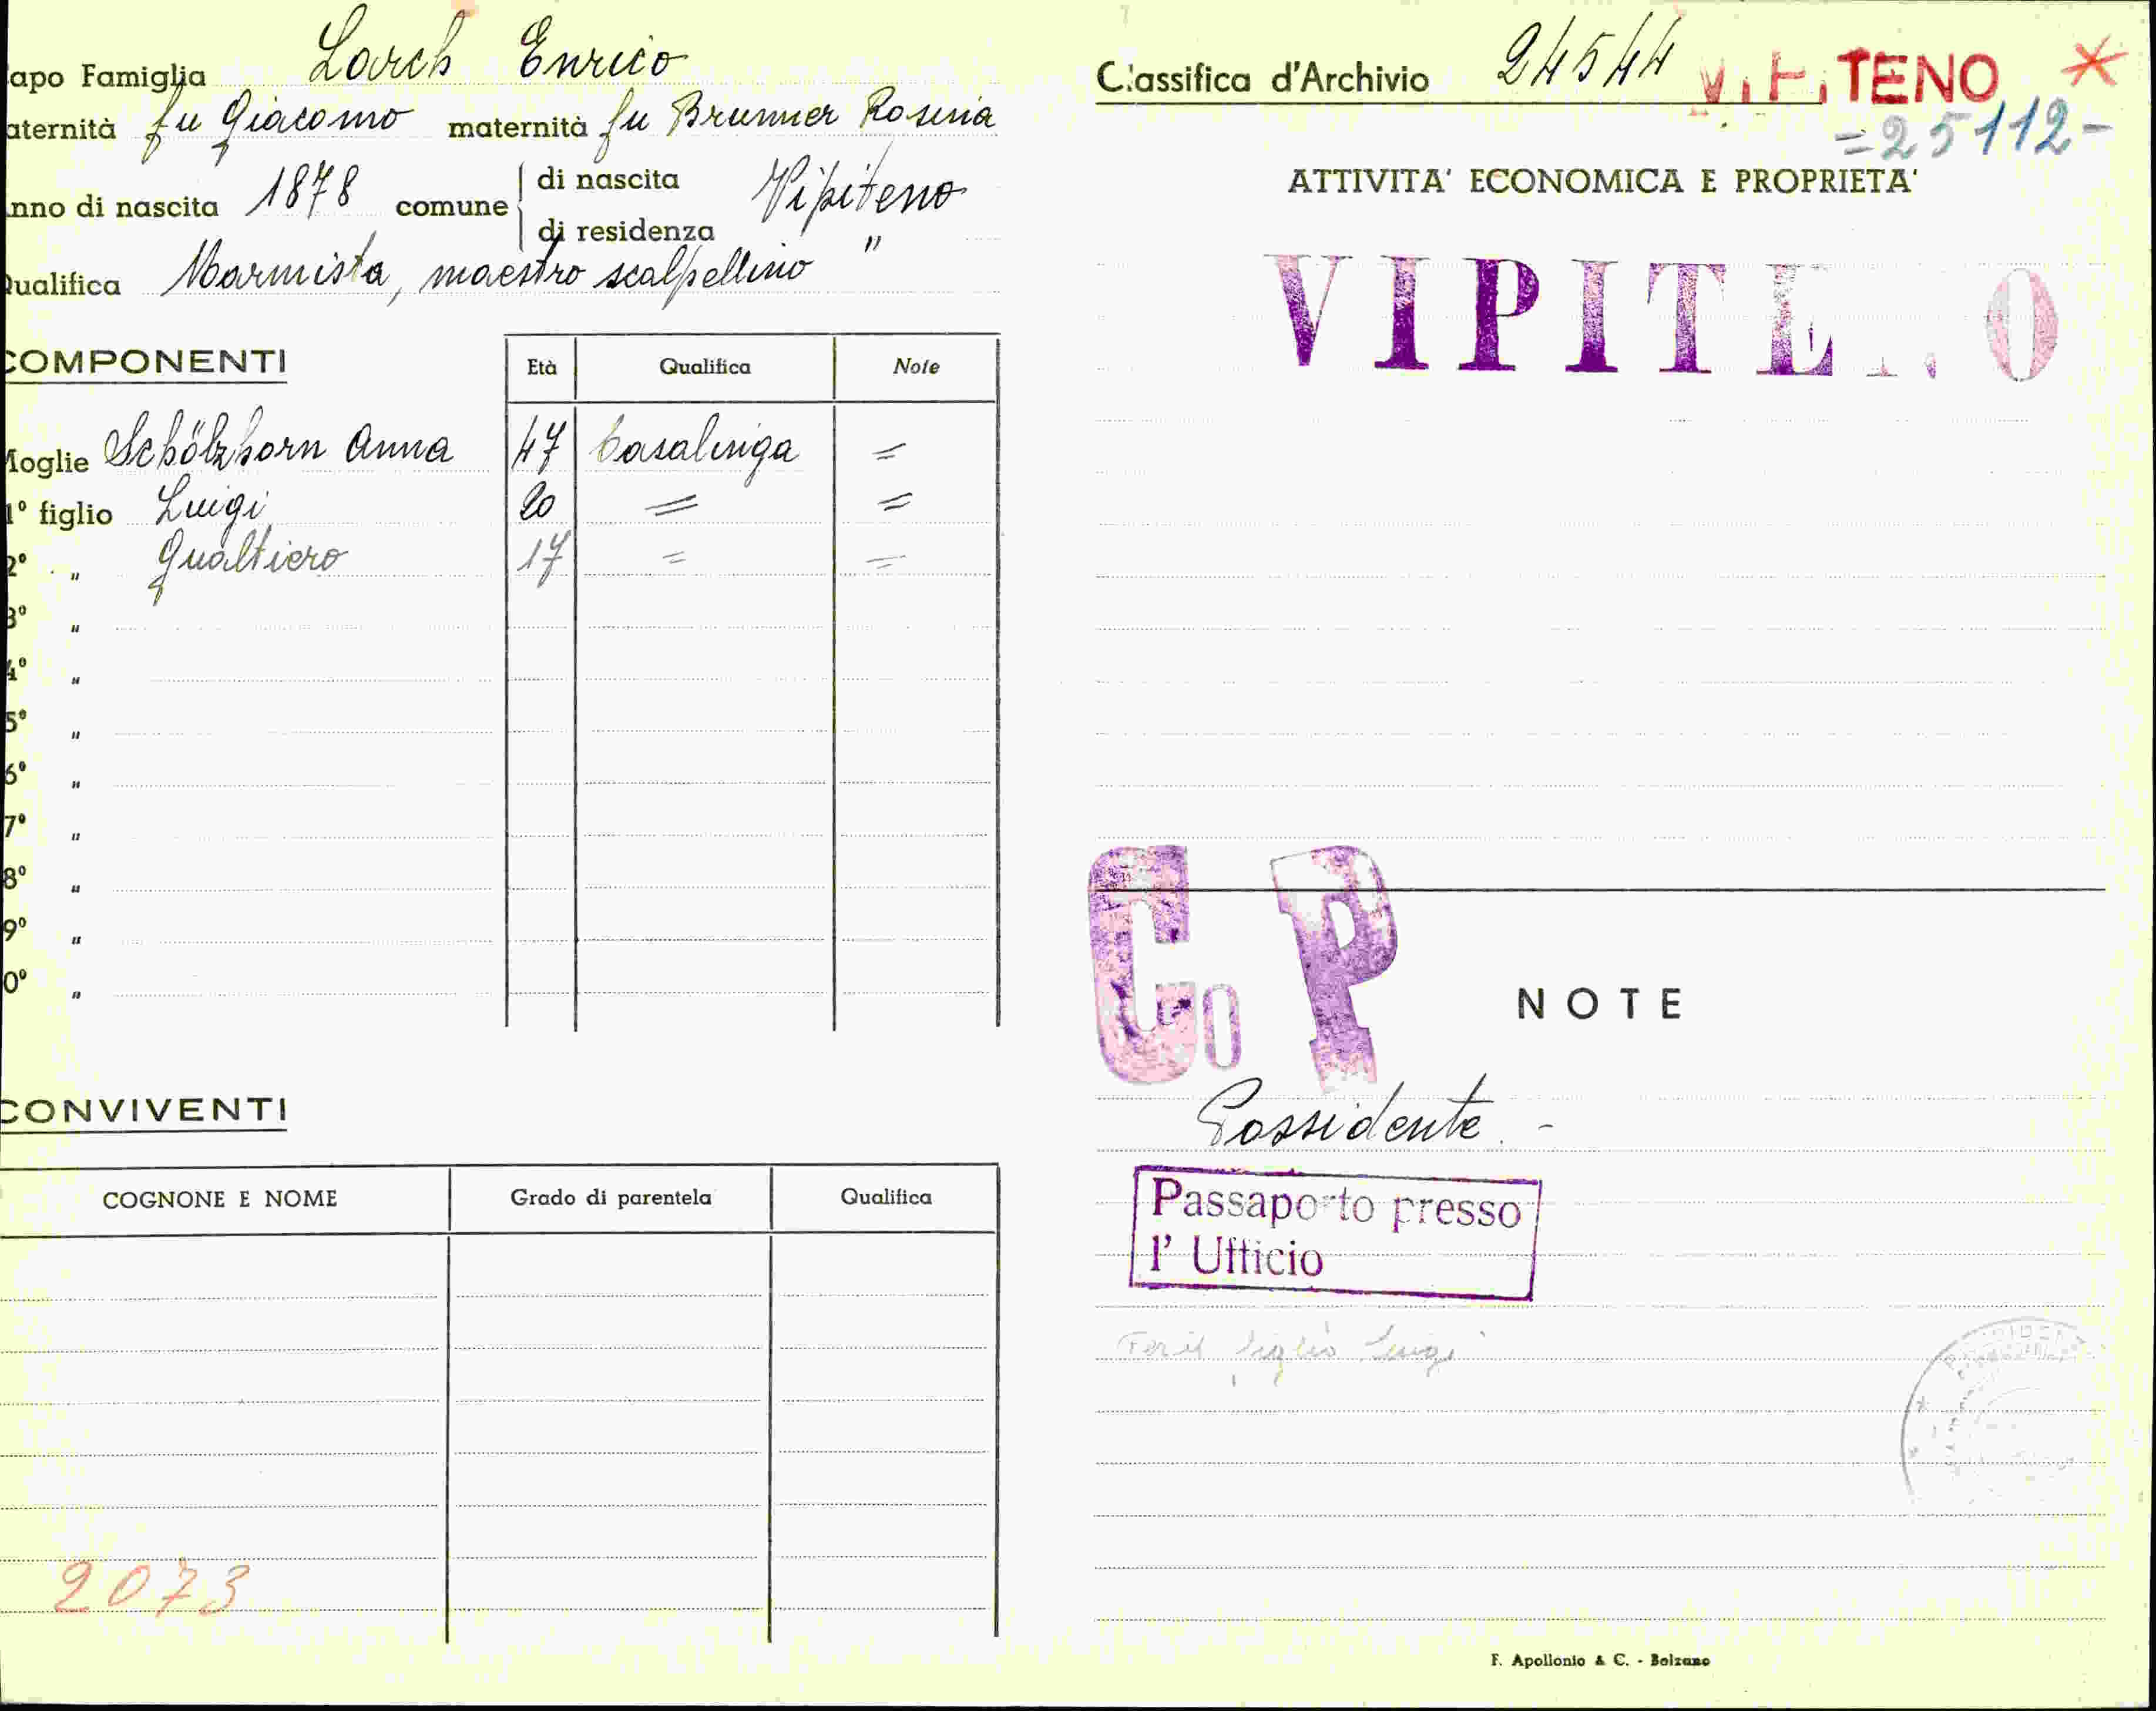 apo Famiglia Lorch Enrico
aternità fu Giacomo maternità fu Brunner Rosina
nno di nascita 1878 comune di nascita Vipiteno
di residenza "
ualifica Marmista, maestro scalpellino
COMPONENTI Età Qualifica Note
oglie Schölzhorn Anna 47 Casalinga =
1° figlio Luigi 20 = =
2° " Gualtiero 17 = =
3° "
4° "
5° "
6° "
7° "
8° "
9° "
0° "
CONVIVENTI
COGNONE E NOME Grado di parentela Qualifica
2073
Classifica d'Archivio 24544 VIPITENO *
=25112-
ATTIVITA' ECONOMICA E PROPRIETA'
VIPITENO
Co P
NOTE
Possidente. -
Passaporto presso
l' Ufficio
figlio Luigi
F. Apollonio & C. - Bolzano